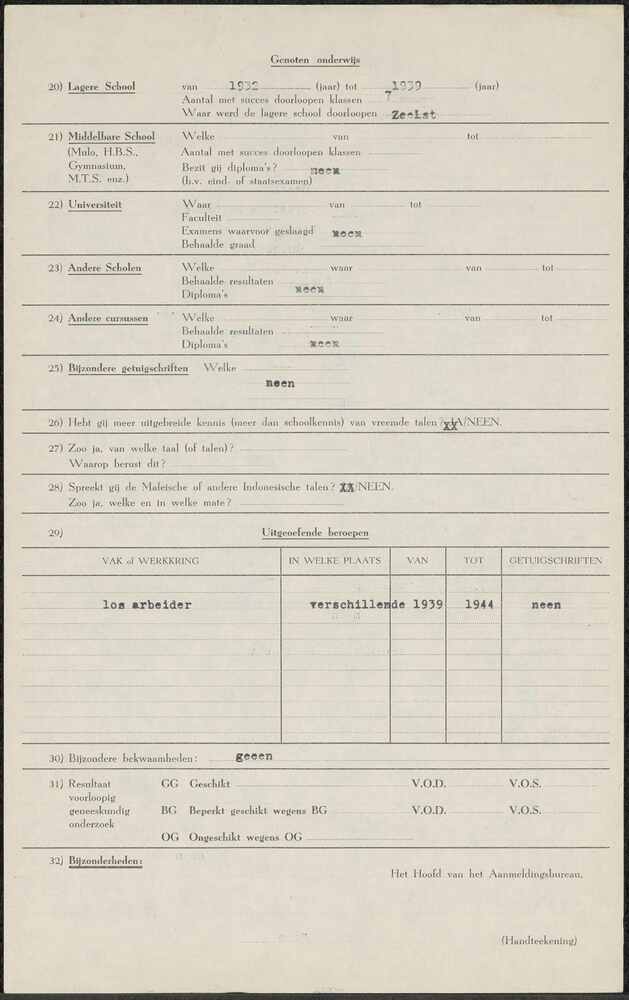 Genoten onderwijs
20) Lagere School van 1932 (jaar) tot 1939 (jaar)
Aantal met succes doorloopen klassen 7
Waar werd de lagere school doorloopen Zeelst
21) Middelbare School Welke van tot
(Mulo, H.B.S., Aantal met succes doorloopen klassen
Gymnasium, Bezit gij diploma's? neen
M.T.S. enz.) (b.v. eind- of staatsexamen)
22) Universiteit Waar van tot
Faculteit
Examens waarvoor geslaagd neen
Behaalde graad
23) Andere Scholen Welke waar van tot
Behaalde resultaten
Diploma's neen
24) Andere cursussen Welke waar van tot
Behaalde resultaten
Diploma's neen
25) Bijzondere getuigschriften Welke
neen
26) Hebt gij meer uitgebreide kennis (meer dan schoolkennis) van vreemde talen? JA/NEEN.
27) Zoo ja, van welke taal (of talen)?
Waarop berust dit?
28) Spreekt gij de Maleische of andere Indonesische talen? XX/NEEN.
Zoo ja, welke en in welke mate?
29) Uitgeoefende beroepen
VAK of WERKKRING IN WELKE PLAATS VAN TOT GETUIGSCHRIFTEN
los arbeider verschillende 1939 1944 neen
30) Bijzondere bekwaamheden: geeen
31) Resultaat GG Geschikt V.O.D. V.O.S.
voorloopig
geneeskundig BG Beperkt geschikt wegens BG V.O.D. V.O.S.
onderzoek
OG Ongeschikt wegens OG
32) Bijzonderheden:
Het Hoofd van het Aanmeldingsbureau,
(Handteekening)